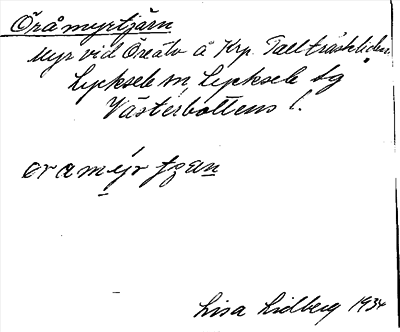 Öråmyrtjärn
Myr vid Öreälv å Krp. Tallträskliden.
Lycksele sn, Lycksele tg
Västerbottens l.
oramýr tzan
Lisa Lidberg 1934